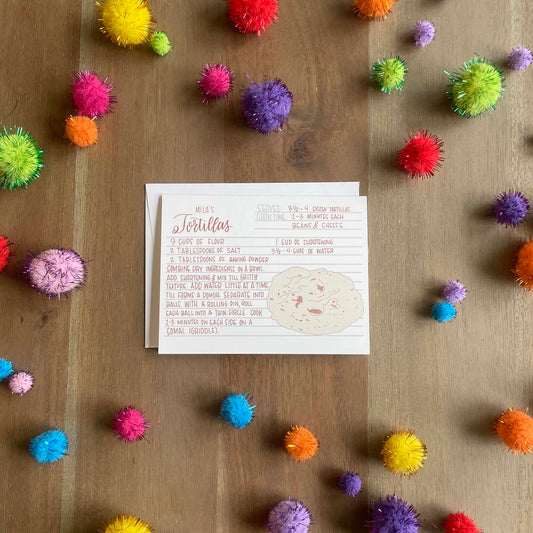 MILA'S
Tortillas
SERVES: 3½-4 DOZEN TORTILLAS
COOK TIME: 2-3 MINUTES EACH
BEANS & CHEESE
9 CUPS OF FLOUR
1 CUP OF SHORTENING
2 TABLESPOONS OF SALT
3½-4 CUPS OF WATER
2 TABLESPOONS OF BAKING POWDER
COMBINE DRY INGREDIENTS IN A BOWL.
ADD SHORTENING & MIX TILL GRITTY
TEXTURE. ADD WATER LITTLE AT A TIME
TILL FORMS A DOUGH. SEPARATE INTO
BALLS WITH A ROLLING PIN, ROLL
EACH BALL INTO A THIN CIRCLE. COOK
2-3 MINUTES ON EACH SIDE ON A
COMAL (GRIDDLE).